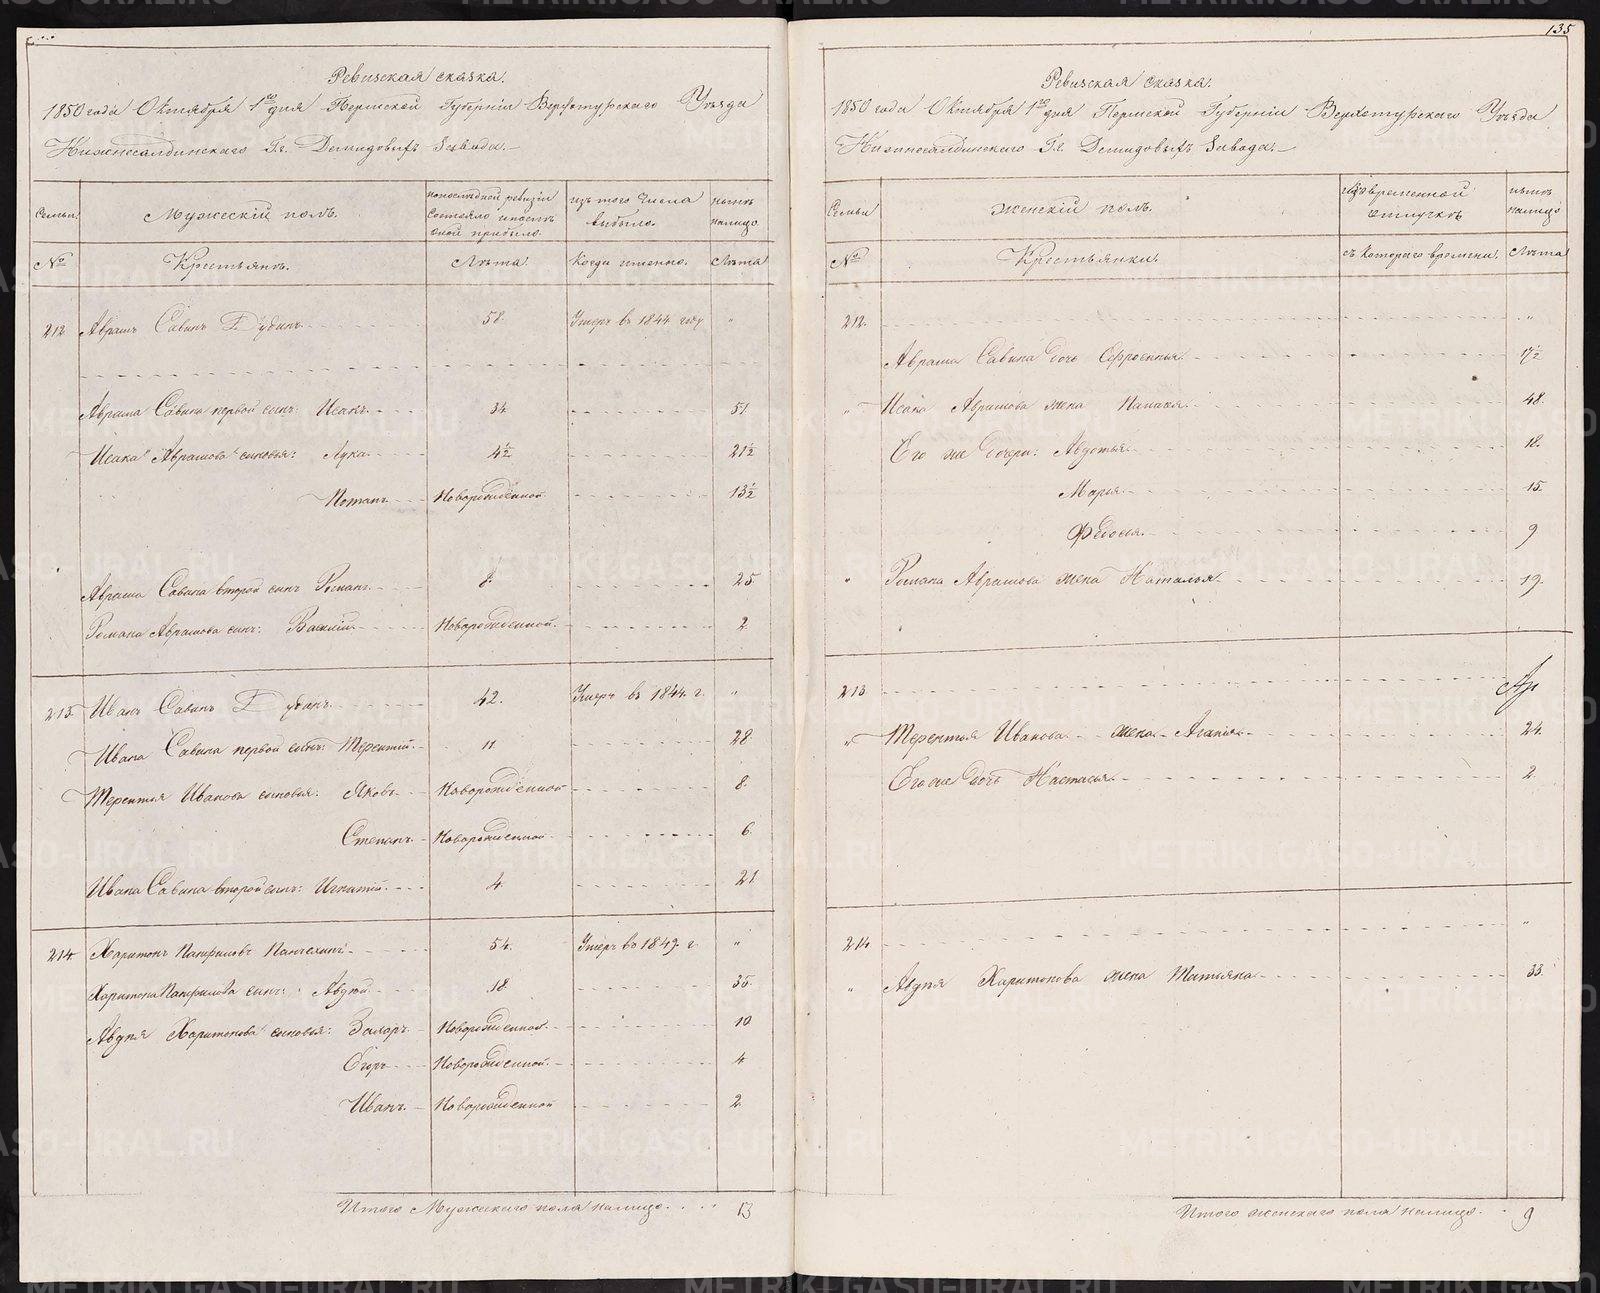 Ревизская сказка.
1850 года Октября 1го дня Пермской Губерніи Верхотурскаго Уѣзда
Нижнесалдинскаго Гг. Демидовыхъ Завода.
Семьи Мужескій полъ. по последней ревизіи состояло и после оной прибыло. изъ того числа выбыло. ныне налицо.
№ Крестьянъ. Лѣта. Когда именно. Лѣта
212 Аврамъ Савинъ Дубинъ 58. Умеръ въ 1844 году "
Аврама Савина первой сынъ: Исакъ. 34 51
Исака Аврамова сыновья: Лука 4½ 21½
Потапъ Новорожденной 13½
Аврама Савина второй сынъ Романъ. 8. 25
Романа Аврамова сынъ: Василій Новорожденной. 2
213. Иванъ Савинъ Дубинъ. 42. Умеръ въ 1844. г. "
Ивана Савина первой сынъ: Терентій. 11 28
Терентья Иванова сыновья: Яковъ Новорожденной 8.
Степанъ. Новорожденной 6
Ивана Савина второй сынъ: Игнатій. 4. 21
214 Харитонъ Панфиловъ 54. Умеръ въ 1849. г. "
Харитона Панфилова сынъ: Авдѣй 18. 35.
Авдѣя Харитонова сыновья: Захаръ Новорожденной. 10
Егоръ Новорожденной. 4
Иванъ. Новорожденной 2.
Итого Мужескаго пола налицо. 13
135
Ревизская сказка.
1850 года Октября 1го дня Пермской Губерніи Верхотурскаго Уѣзда
Нижнесалдинскаго Гг. Демидовыхъ Завода.
Семьи Женскій полъ. во временной отлучкѣ ныне налицо
№ Крестьянки. съ котораго времени. Лѣта
212. "
Аврама Савина дочь Офросинья. 17½
" Исака Аврамова жена 48.
Его же дочери: Авдотья. 18.
Марья. 15.
Федосья. 9
" Романа Аврамова жена Наталья. 19.
213
" Терентья Иванова жена Агапія 24.
Его же дочь Настасья. 2.
214 "
" Авдѣя Харитонова жена Татьяна 33.
Итого женскаго пола налицо. 9
METRIKI.GASO-URAL.RU